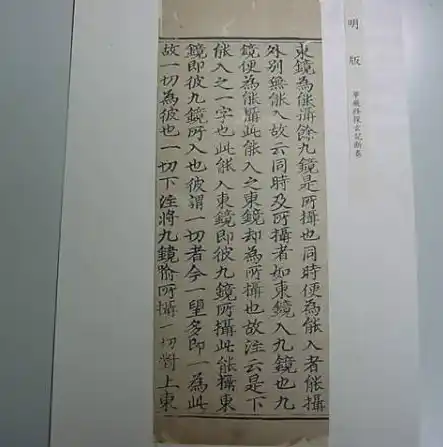 明版
東鏡為能攝餘九鏡是所攝也同時便為能入者能攝
外別無能入故云同時及所攝者如東鏡入九鏡也九
鏡便為能攝此能入之東鏡却為所攝也故注云是下
能入之一字也此能入東鏡即彼九鏡所攝此能攝東
鏡即彼九鏡所入也彼謂一切者今一望多即一為此
故一切為彼也一切下注將九鏡喻所攝一切對上東